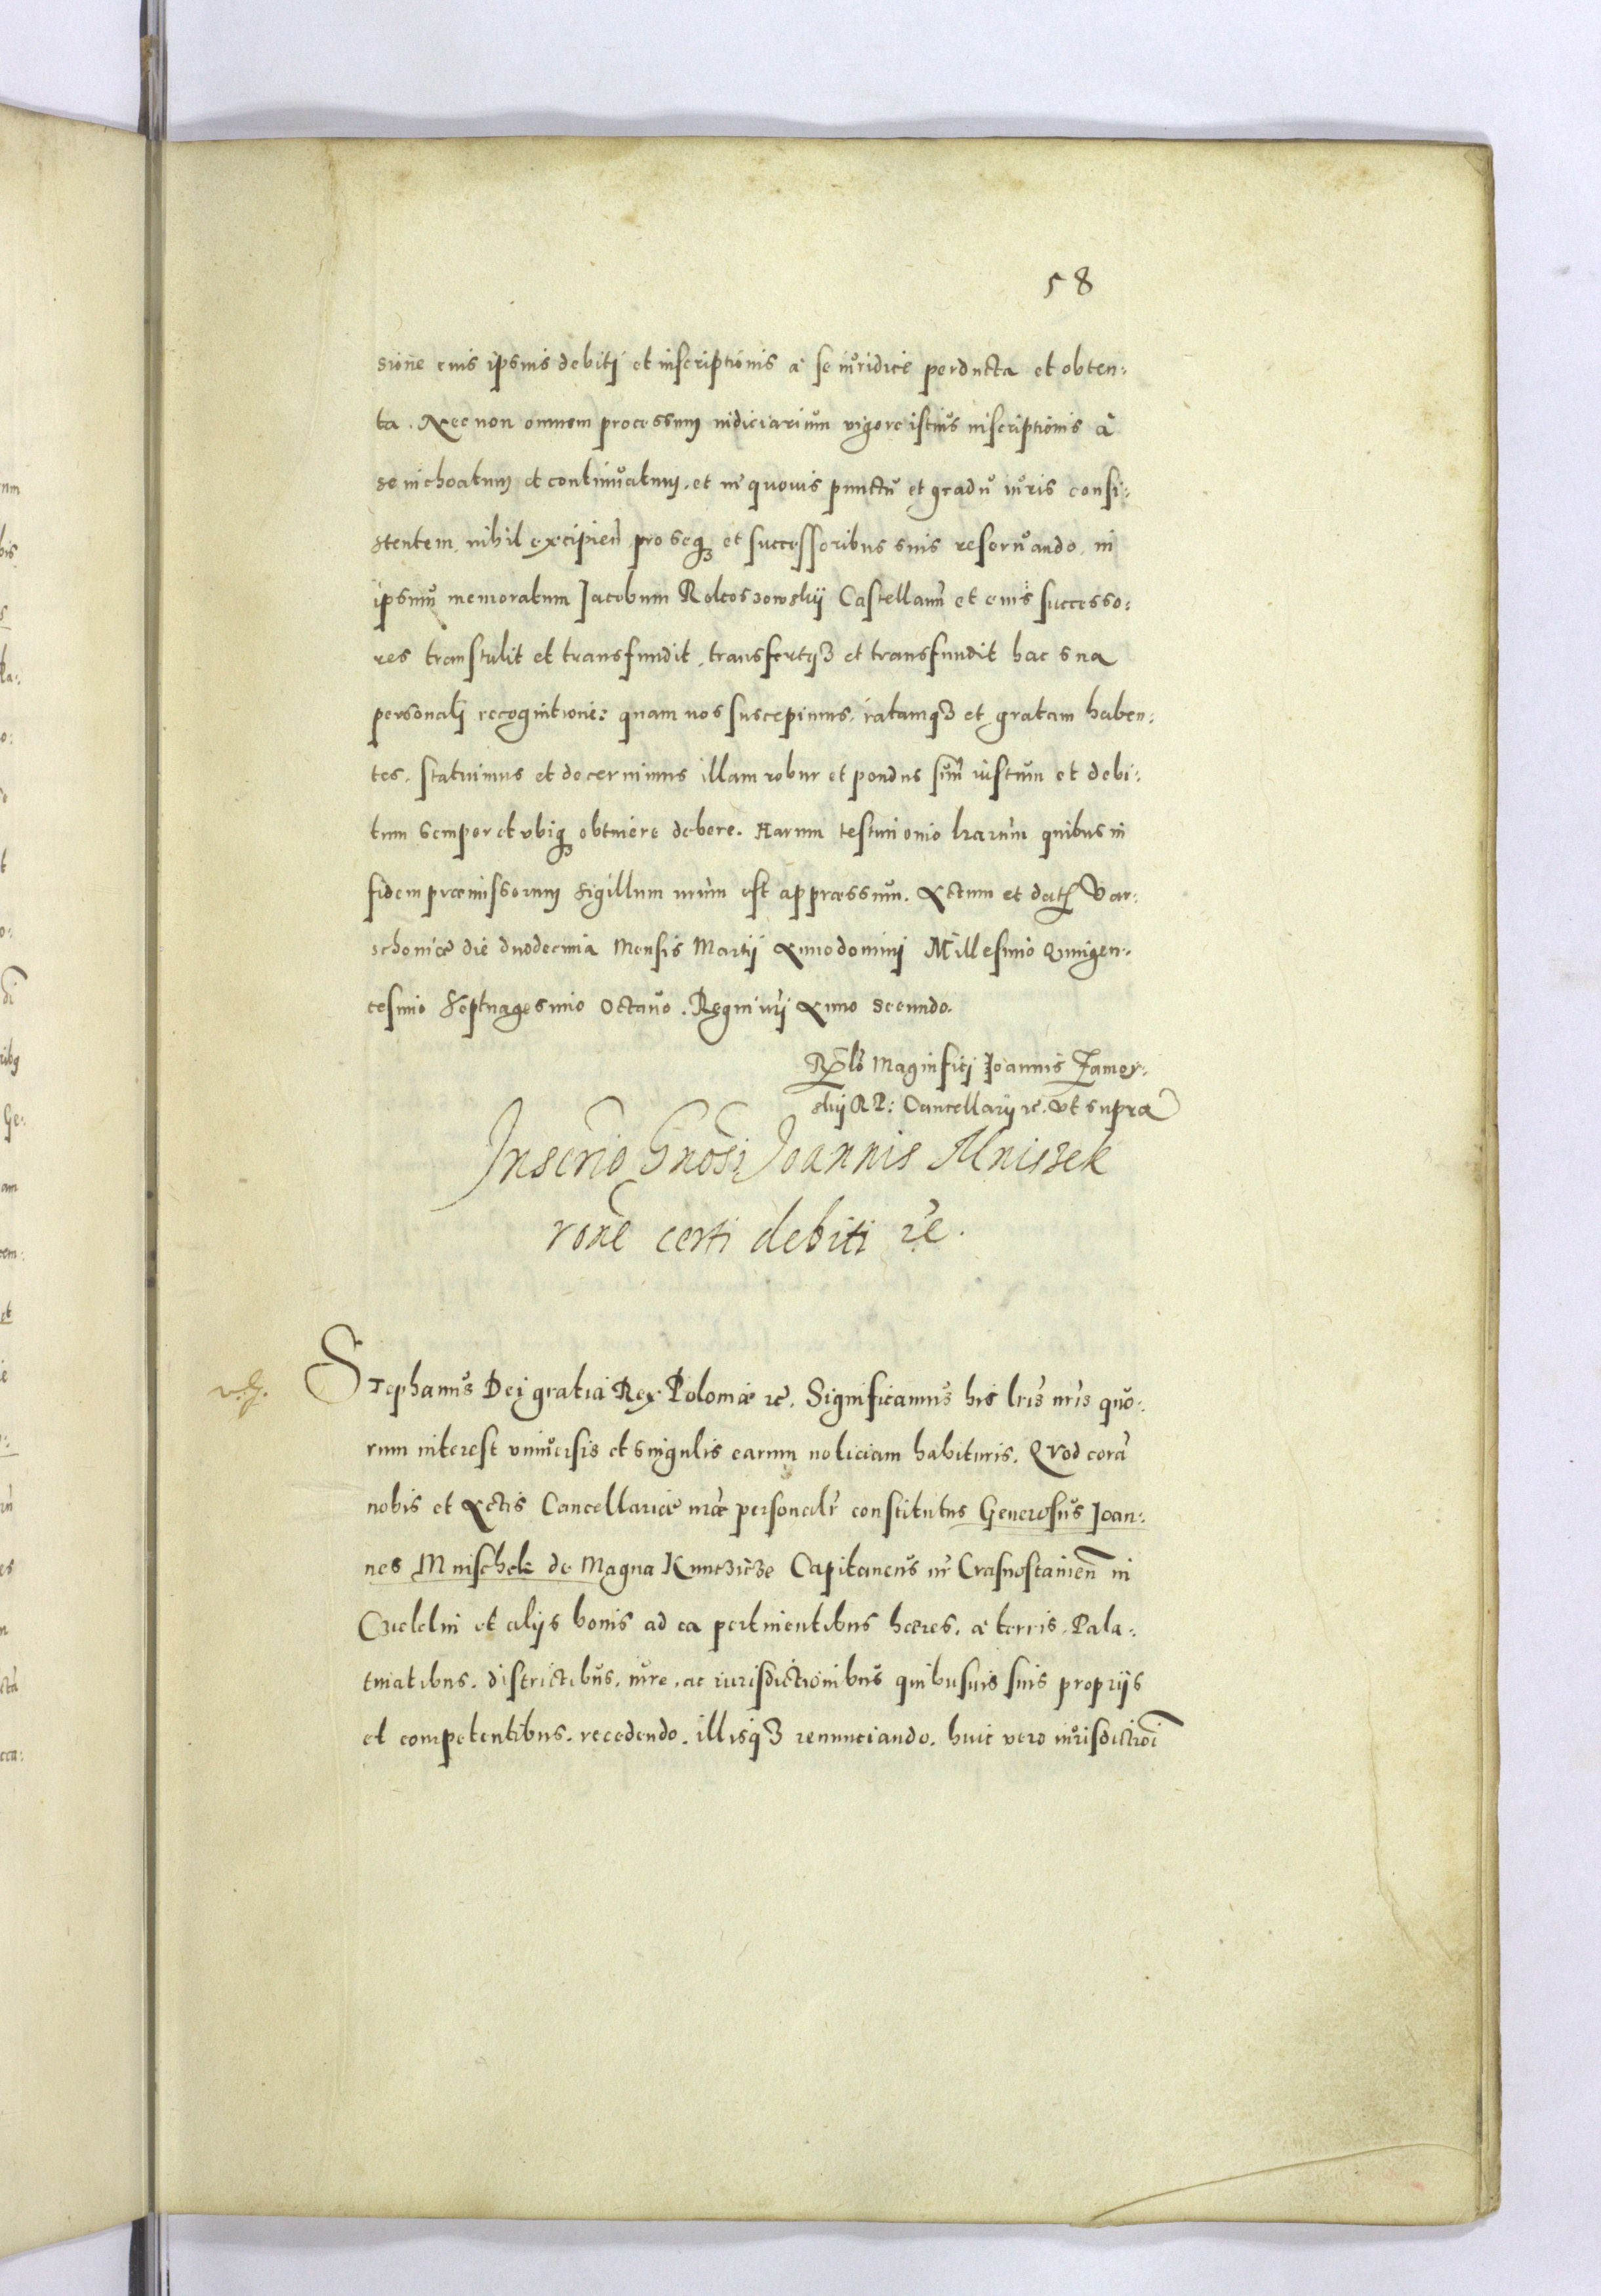 58
sione eius ipsius debitj et inscriptionis a se iuridice perducta et obten:
ta. Nec non omnem processum iudiciarium vigore istius inscriptionis à
se inchoatum et continuatum. et in quouis punctu et gradu iuris consi:
stentem, nihil excipien̄ pro seq̨ et successoribus suis reseruando, in
ipsum memoratum Jacobum Rokossowskij Castellanū et eius successo:
res transtulit et transfundit, transfertq3 et transfundit hac sua
personalj recognitione: quam nos suscepimus, ratamq3 et gratam haben:
tes, statuimus et decernimus illam robur et pondus suū iustum et debi:
tum semper et vbiq̨ obtinere debere. Harum testimonio lrarūm quibus in
fidem præmissorum sigillum nrūm est appræssum. Actum et dat Var:
schouiæ die duodecima Mensis Martij Anno dominj Millesimo Quingen:
tesimo Septuagesimo Octauo. Regni nrj Anno secundo.
Rlō Magnificj Joannis Zamoy:
skij R P: Cancellarij rc. vt supra
Inscrio Gnosi Joannis Mniszek
rone certi debiti rc.
Stephanus Dej gratia Rex Poloniæ rc. Significamus his lris nris quo:
rum interest vniuersis et singulis earum noticiam habituris. Quod corā
nobis et Actis Cancellariæ nræ personalr constitutus Generosus Joan:
nes Mnischek de Magna Kunczicze Capitaneus nr Crasnostauien̄ in
et alijs bonis ad ea pertinentibus hæres, a terris, Pala:
tinatibus, districtibus, iure, ac iurisdictionibus quibusuis suis proprijs
et competentibus, recedendo, illisq3 renunciando, huic vero iurisdictioni